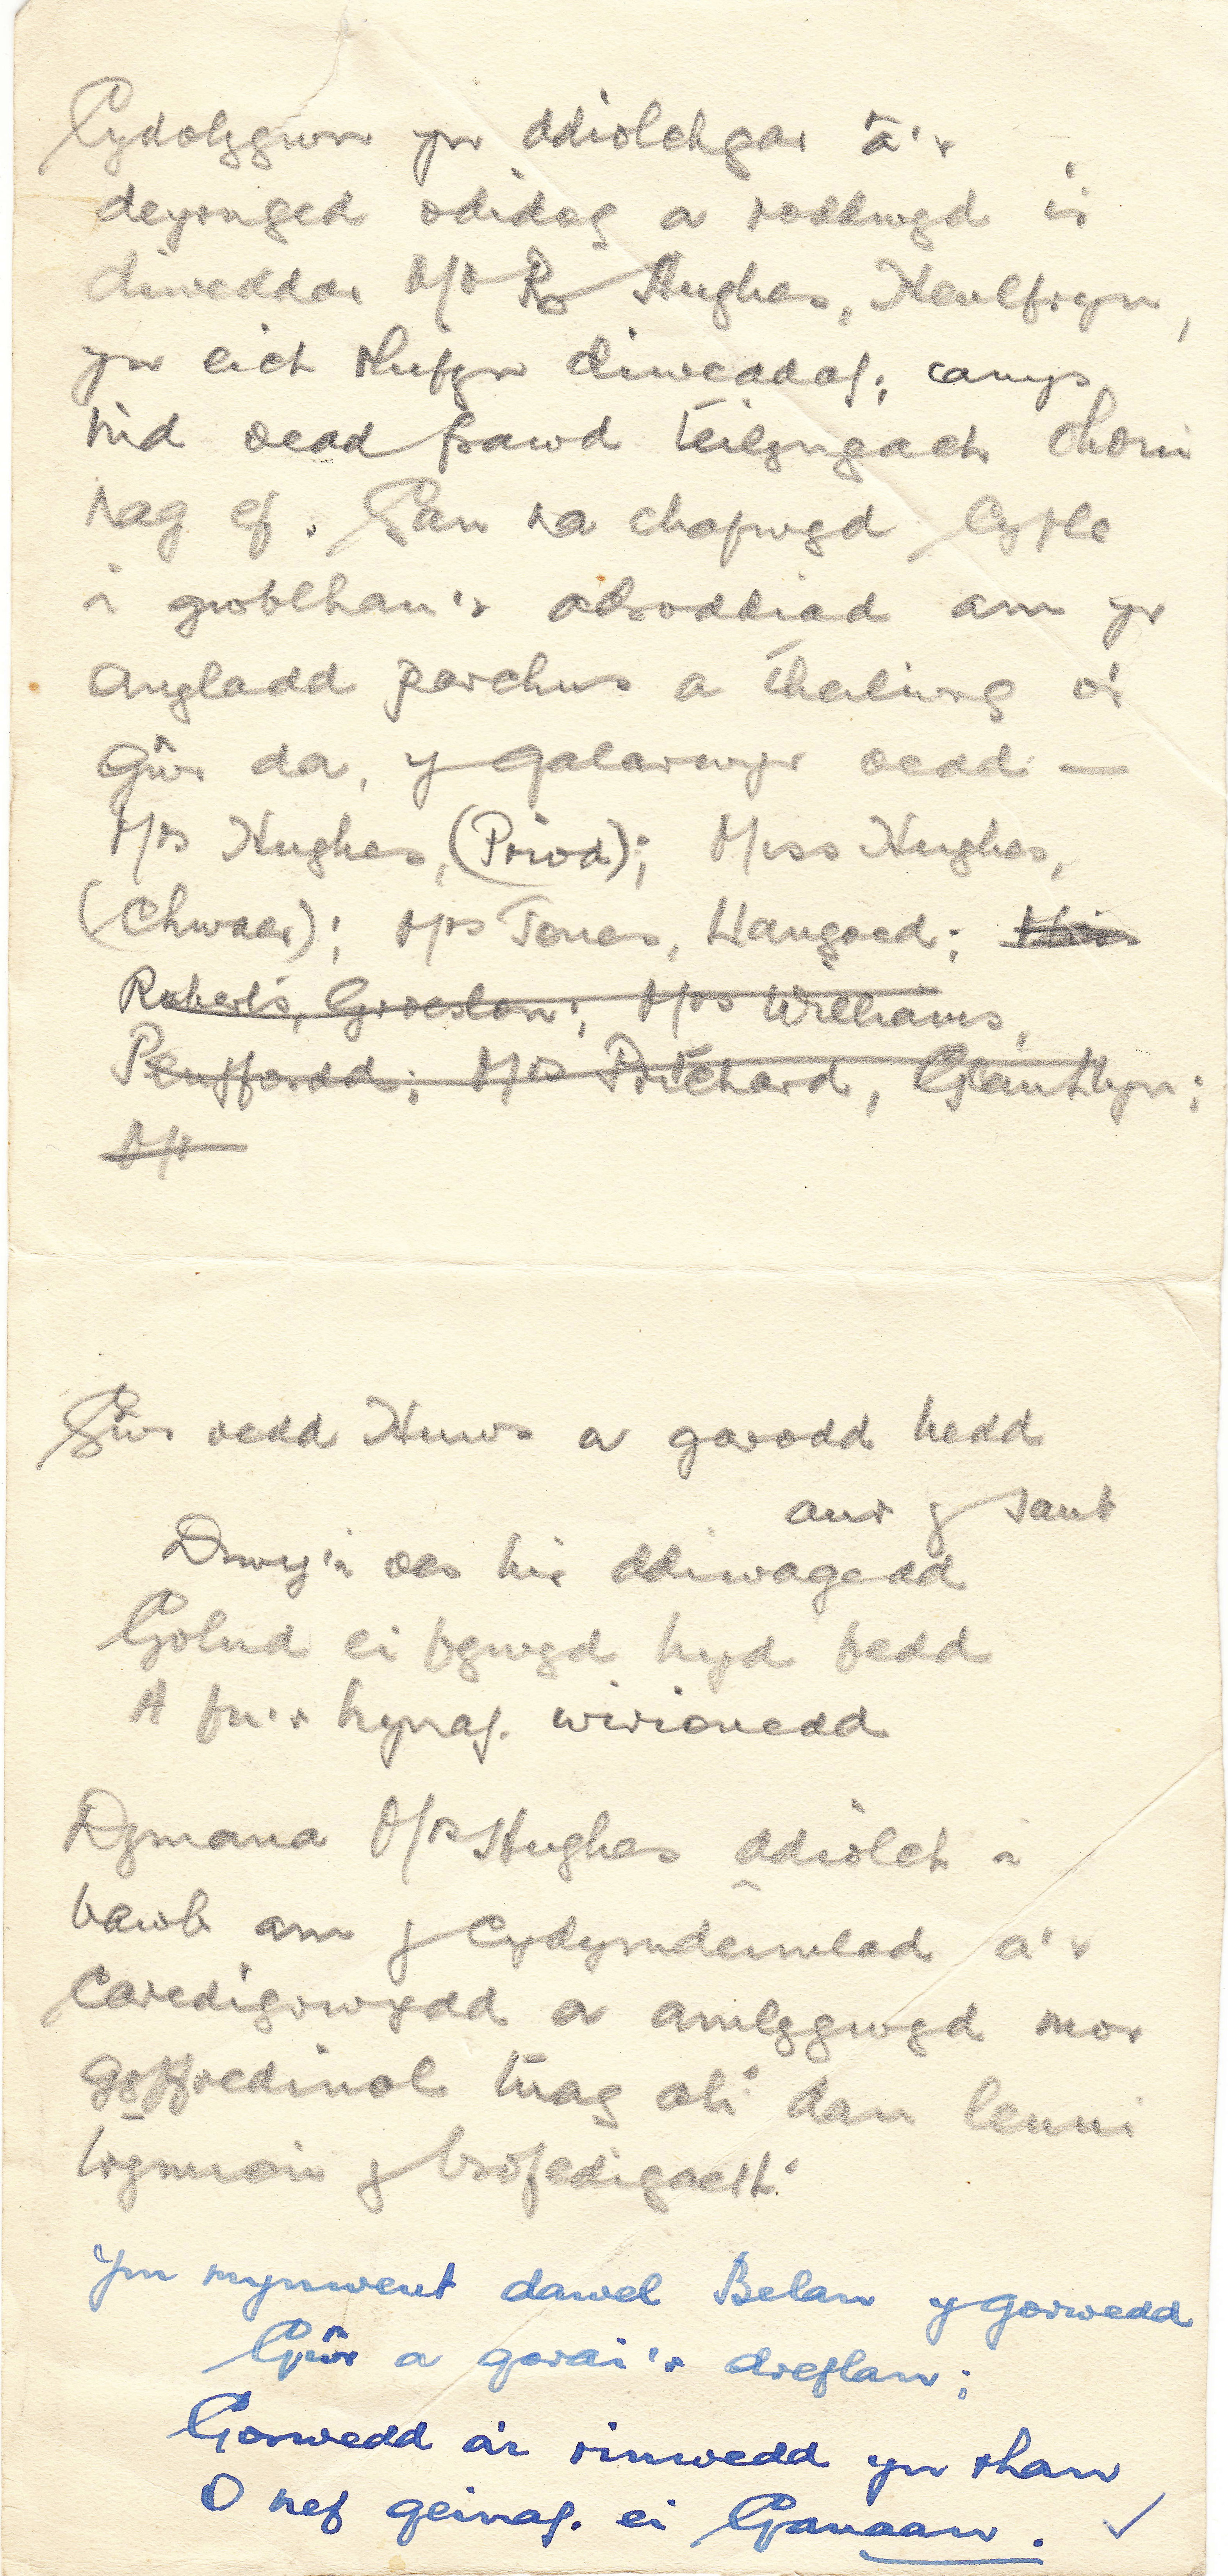 Cydolygwn yn ddiolchgar â'r
deyrnged odidog a roddwyd i'r
diweddar Mr R Hughes, Heulfryn,
yn eich rhifyn diweddaf; canys
nid oedd frawd teilyngach ohoni
nag ef. Gan na chafwyd cyfle
i gwblhau'r adroddiad am yr
angladd parchus a theilwng o'r
Gŵr da, y galarwyr oedd —
Mrs Hughes, (Priod); Miss Hughes,
(Chwaer); Mrs Jones, Llangoed; Miss
Roberts, Groeslon; Mrs Williams,
Penffordd; Mrs Pritchard, Glanllyn;
Mr
Gŵr oedd Huws a garodd hedd
aur y sant
Drwy'i oes hir ddiwagedd
Golud ei fywyd hyd fedd
A fu'r hynaf. wirionedd
Dymuna Mrs Hughes ddiolch i
bawb am y cydymdeimlad a'r
Caredigrwydd a amlygwyd mor
gyffredinol tuag ati dan lenni
trymion y brofedigaeth
Ym mynwent dawel Belan y gorwedd
Gŵr a gorai'r dreflan;
Gorwedd a'i rinwedd yn rhan
O nef geinaf. ei Ganaan.